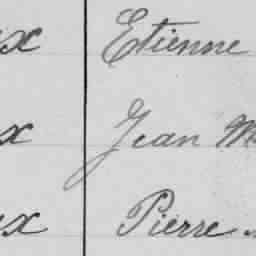 x Etienne
x Jean M
ux Pierre